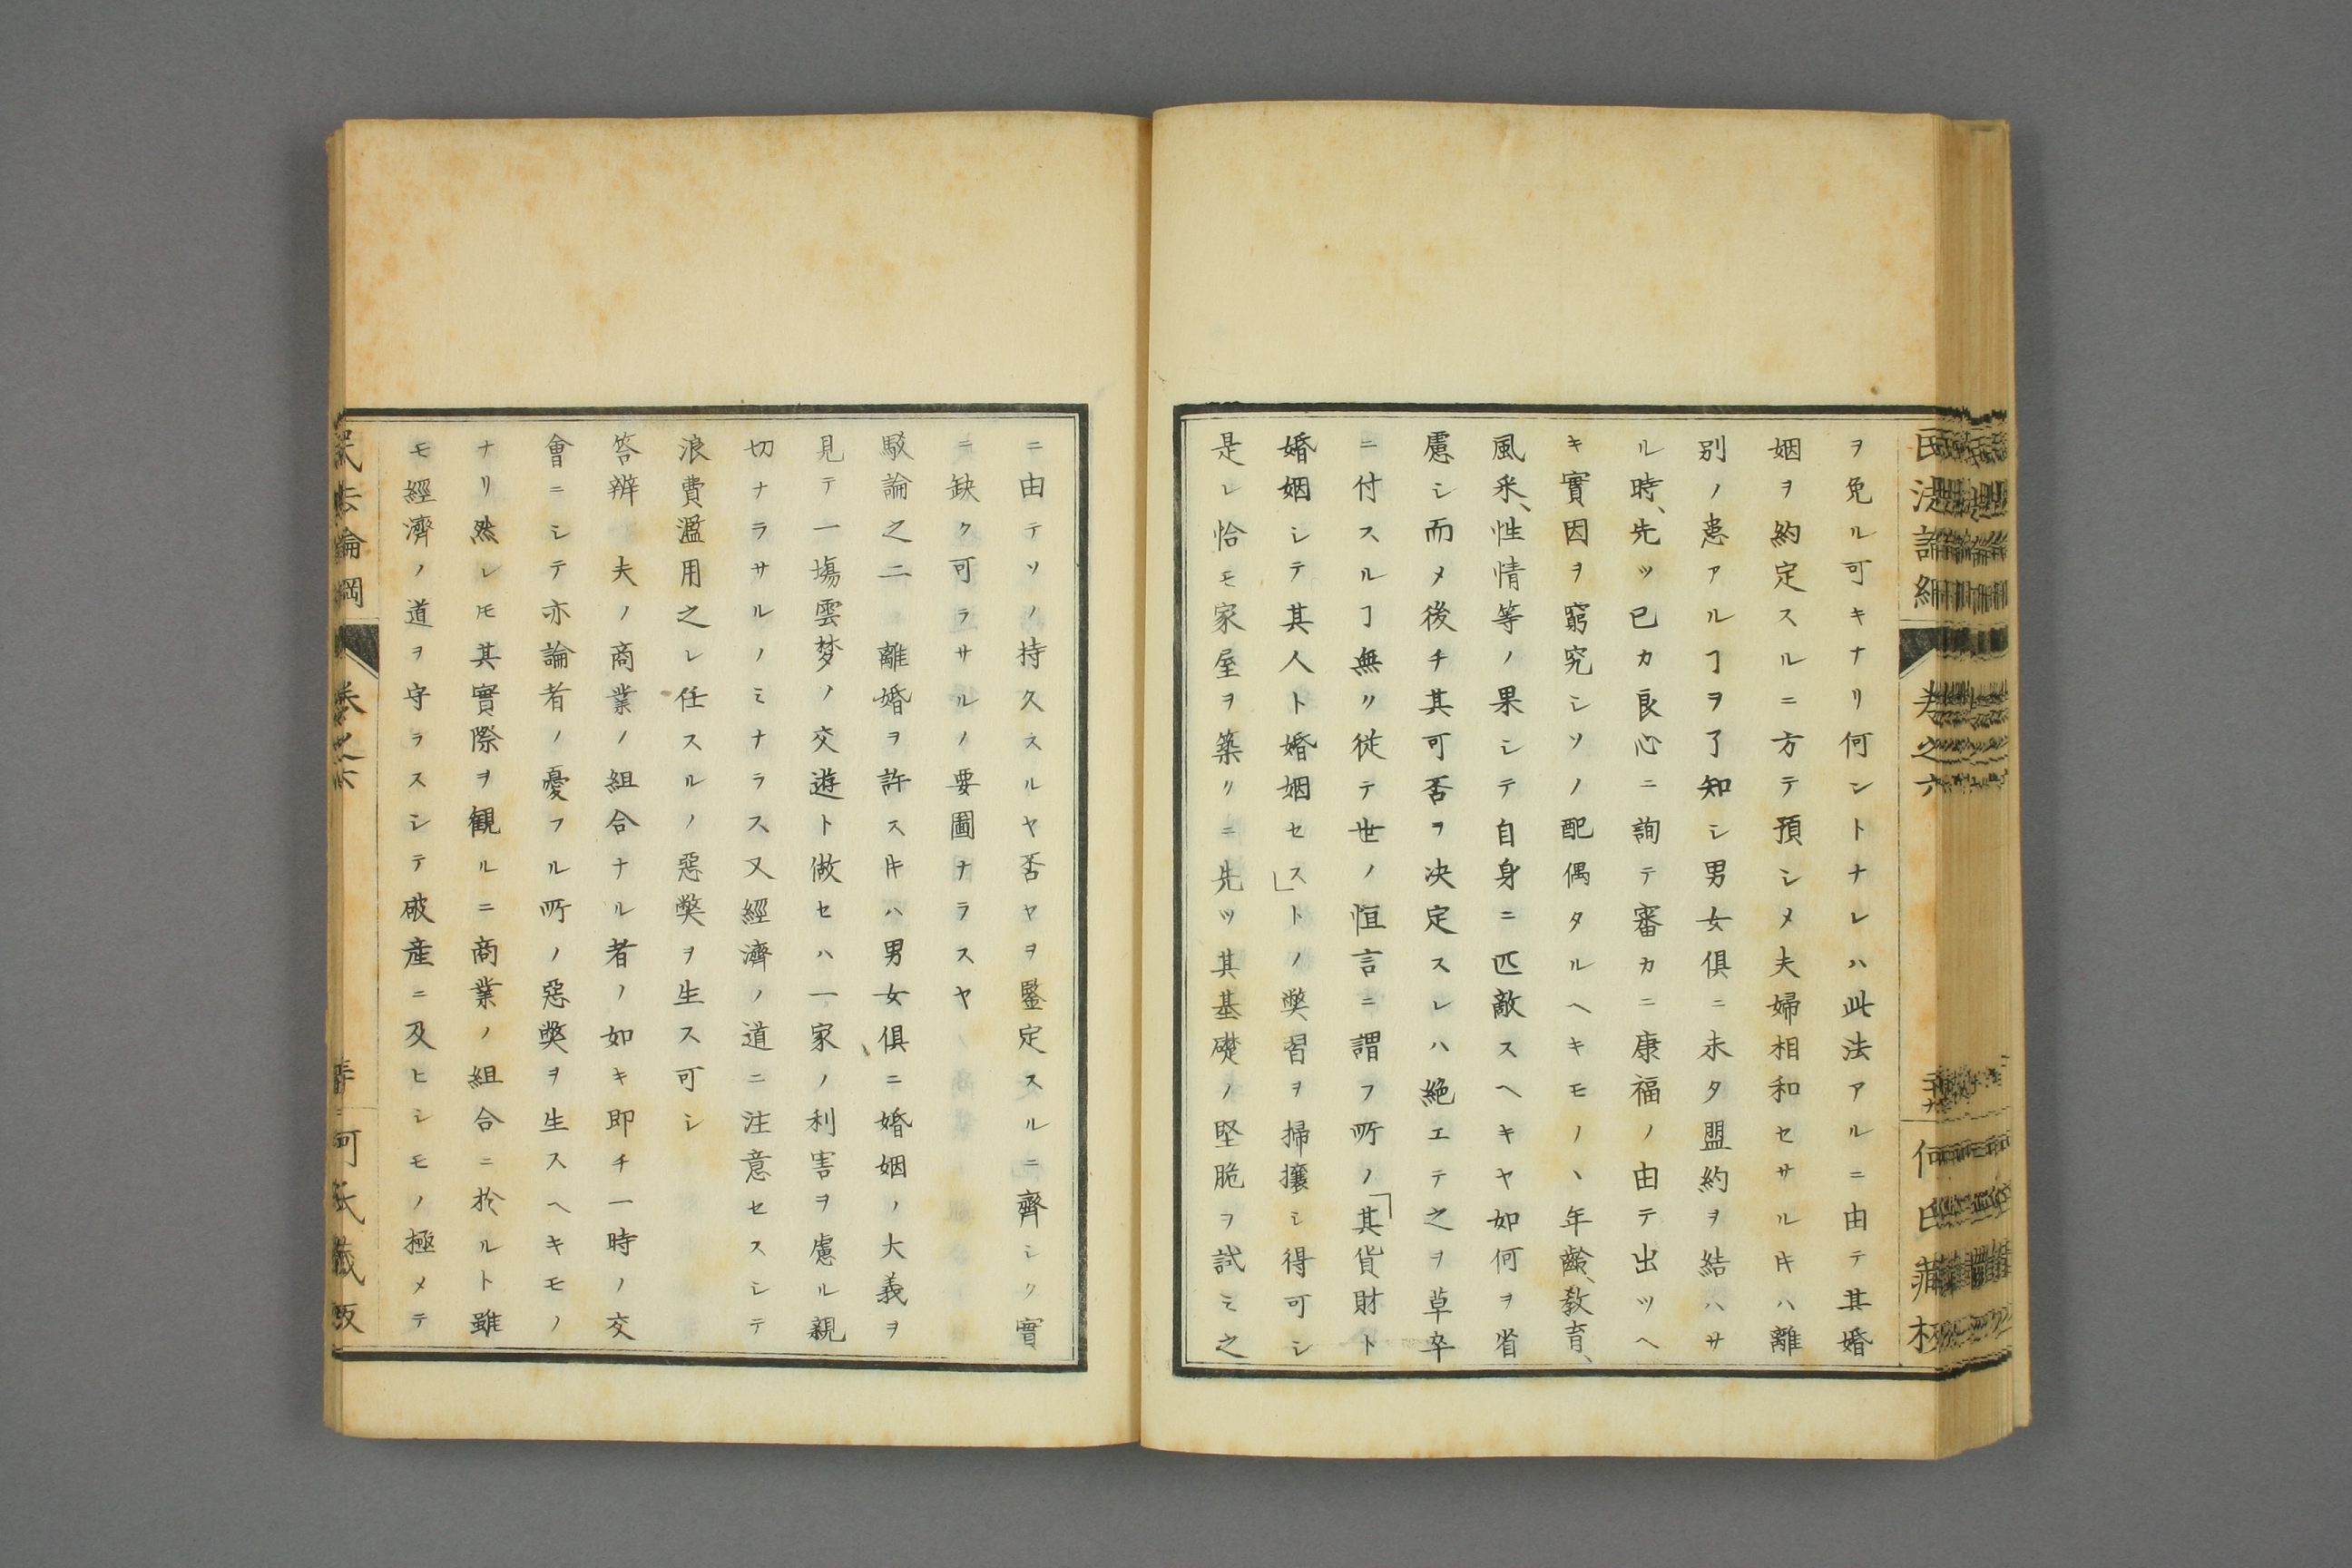 ヲ免ル可キナリ何ントナレハ此法アルニ由テ其婚
姻ヲ約定スルニ方テ預シメ夫婦相和セサルキハ離
别ノ患アルヿヲ了知シ男女俱ニ未タ盟約ヲ結ハサ
ル時、先ツ已カ良心ニ詢テ審カニ康福ノ由テ出ツヘ
キ實因ヲ窮究シソノ配偶タルヘキモノ、年齡、敎育、
風采、性情等ノ果シテ自身ニ匹敵スヘキヤ如何ヲ省
慮シ而メ後チ其可否ヲ决定スレハ絶エテ之ヲ草卒
ニ付スルヿ無ク従テ世ノ恒言ニ謂フ所ノ「其貨財ト
婚姻シテ其人ト婚姻セス」トノ獘習ヲ掃攘シ得可シ
是レ恰モ家屋ヲ築クニ先ツ其基礎ノ堅脆ヲ試ミ之
ニ由テソノ持久スルヤ否ヤヲ鑒定スルニ齊シク實
ニ缺ク可ラサルノ要圖ナラスヤ
駁論之二　離婚ヲ許スキハ男女俱ニ婚姻ノ大義ヲ
見テ一塲雲梦ノ交遊ト做セハ一家ノ利害ヲ慮ル親
切ナラサルノミナラス又經濟ノ道ニ注意セスシテ
浪費濫用之レ任スルノ惡獘ヲ生ス可シ
答辨　夫ノ商業ノ組合ナル者ノ如キ即チ一時ノ交
會ニシテ亦論者ノ憂フル所ノ惡獘ヲ生スヘキモノ
ナリ然レ𪜈其實際ヲ観ルニ商業ノ組合ニ於ルト雖
モ經濟ノ道ヲ守ラスシテ破産ニ及ヒシモノ極メテ
民法論綱
卷之六
何氏藏版